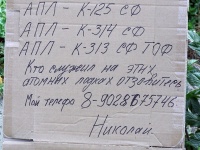 АПЛ - К-125 СФ
АПЛ - К-314 СФ
АПЛ - К-313 СФ ТОФ
Кто служил на этих
атомных лодках отзовитесь
Мой телефо 8-9028675746
Николай